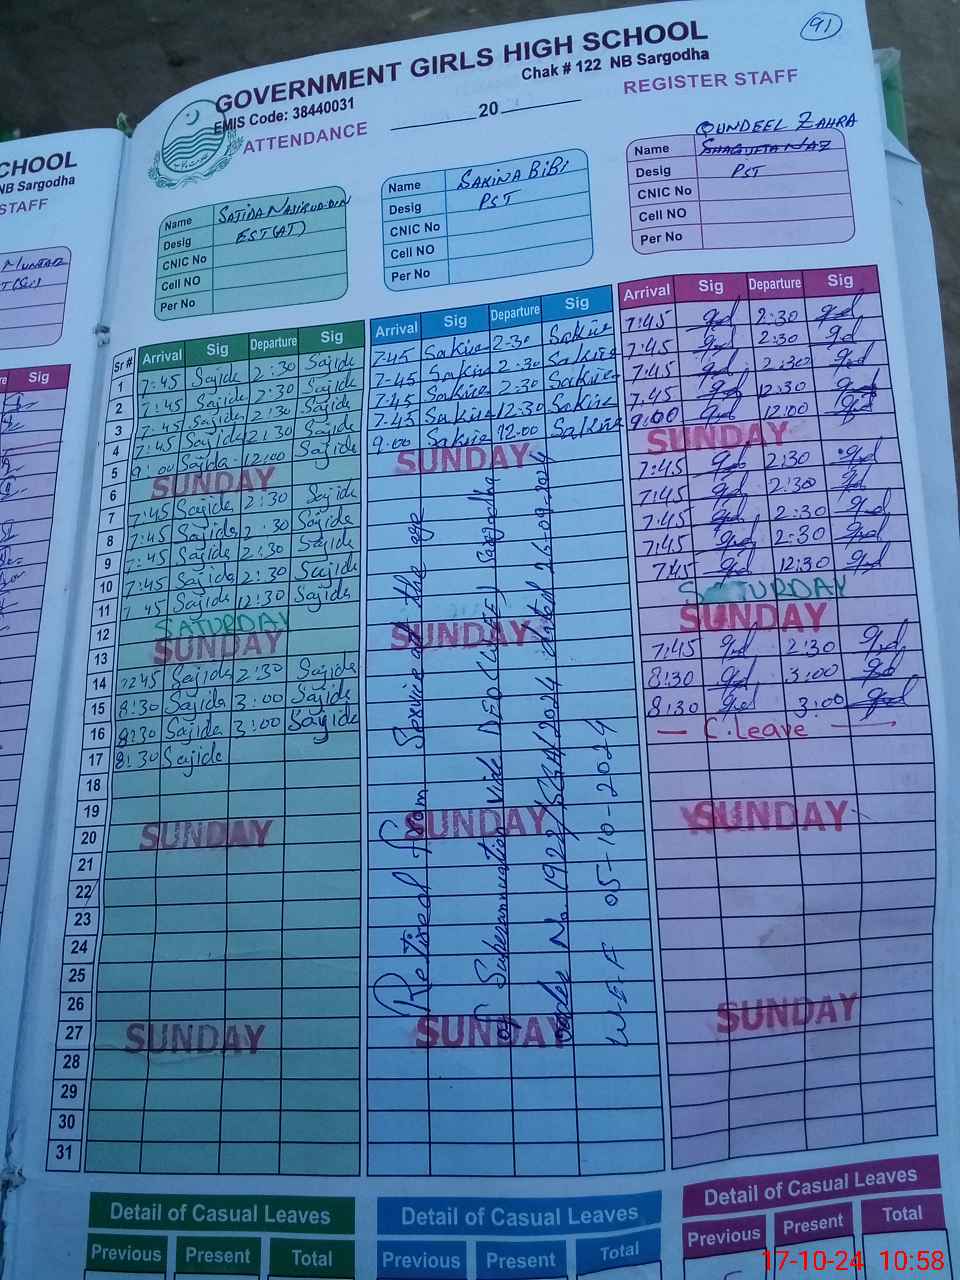 91
GOVERNMENT GIRLS HIGH SCHOOL
Chak # 122 NB Sargodha
EMIS Code: 38440031
ATTENDANCE
20
REGISTER STAFF
CHOOL
NB Sargodha
STAFF
Sig
Name SAJIDA NASIRUD-DIN
Desig EST(AT)
CNIC No
Cell NO
Per No
Name SAKINA BIBI
Desig PST
CNIC No
Cell NO
Per No
QUNDEEL ZAHRA
Name SHAGUFTA NAZ
Desig PST
CNIC No
Cell NO
Per No
Sr # Arrival Sig Departure Sig
1 7:45 Sajide 2:30 Sajide
2 7:45 Sajide 2:30 Sajide
3 7:45 Sajide 2:30 Sajide
4 7:45 Sajide 12:30 Sajide
5 9:00 Sajida 12:00 Sajide
6 SUNDAY
7 7:45 Sajide 2:30 Sajide
8 7:45 Sajide 2:30 Sajide
9 7:45 Sajide 2:30 Sajide
10 7:45 Sajide 2:30 Sajide
11 7:45 Sajide 12:30 Sajide
12 SATURDAY
13 SUNDAY
14 7:45 Sajide 2:30 Sajide
15 8:30 Sajide 3:00 Sajide
16 8:30 Sajide 3:00 Sajide
17 8:30 Sajide
18
19
20 SUNDAY
21
22
23
24
25
26
27 SUNDAY
28
29
30
31
Arrival Sig Departure Sig
7-45 Sakine 2-30 Sakine
7-45 Sakine 2:30 Sakine
7-45 Sakine 2:30 Sakine
7-45 Sakine 12:30 Sakine
9:00 Sakine 12:00 Sakine
SUNDAY
SUNDAY
SUNDAY
SUNDAY
Retired from Service at the age
of Superannuation vide DEO (W-EE) Sargodha
order No. 1922/ dated 26-09-2024
W-E-F 05-10-2024
Arrival Sig Departure Sig
7:45 2:30
7:45 2:30
7:45 2:30
7:45 12:30
9:00 12:00
SUNDAY
7:45 2:30
7:45 2:30
7:45 2:30
7:45 2:30
7:45 12:30
SATURDAY
SUNDAY
7:45 2:30
8:30 3:00
8:30 3:00
— C.Leave —
SUNDAY
SUNDAY
Detail of Casual Leaves
Previous Present Total
Detail of Casual Leaves
Previous Present Total
Detail of Casual Leaves
Previous Present Total
17-10-24 10:58